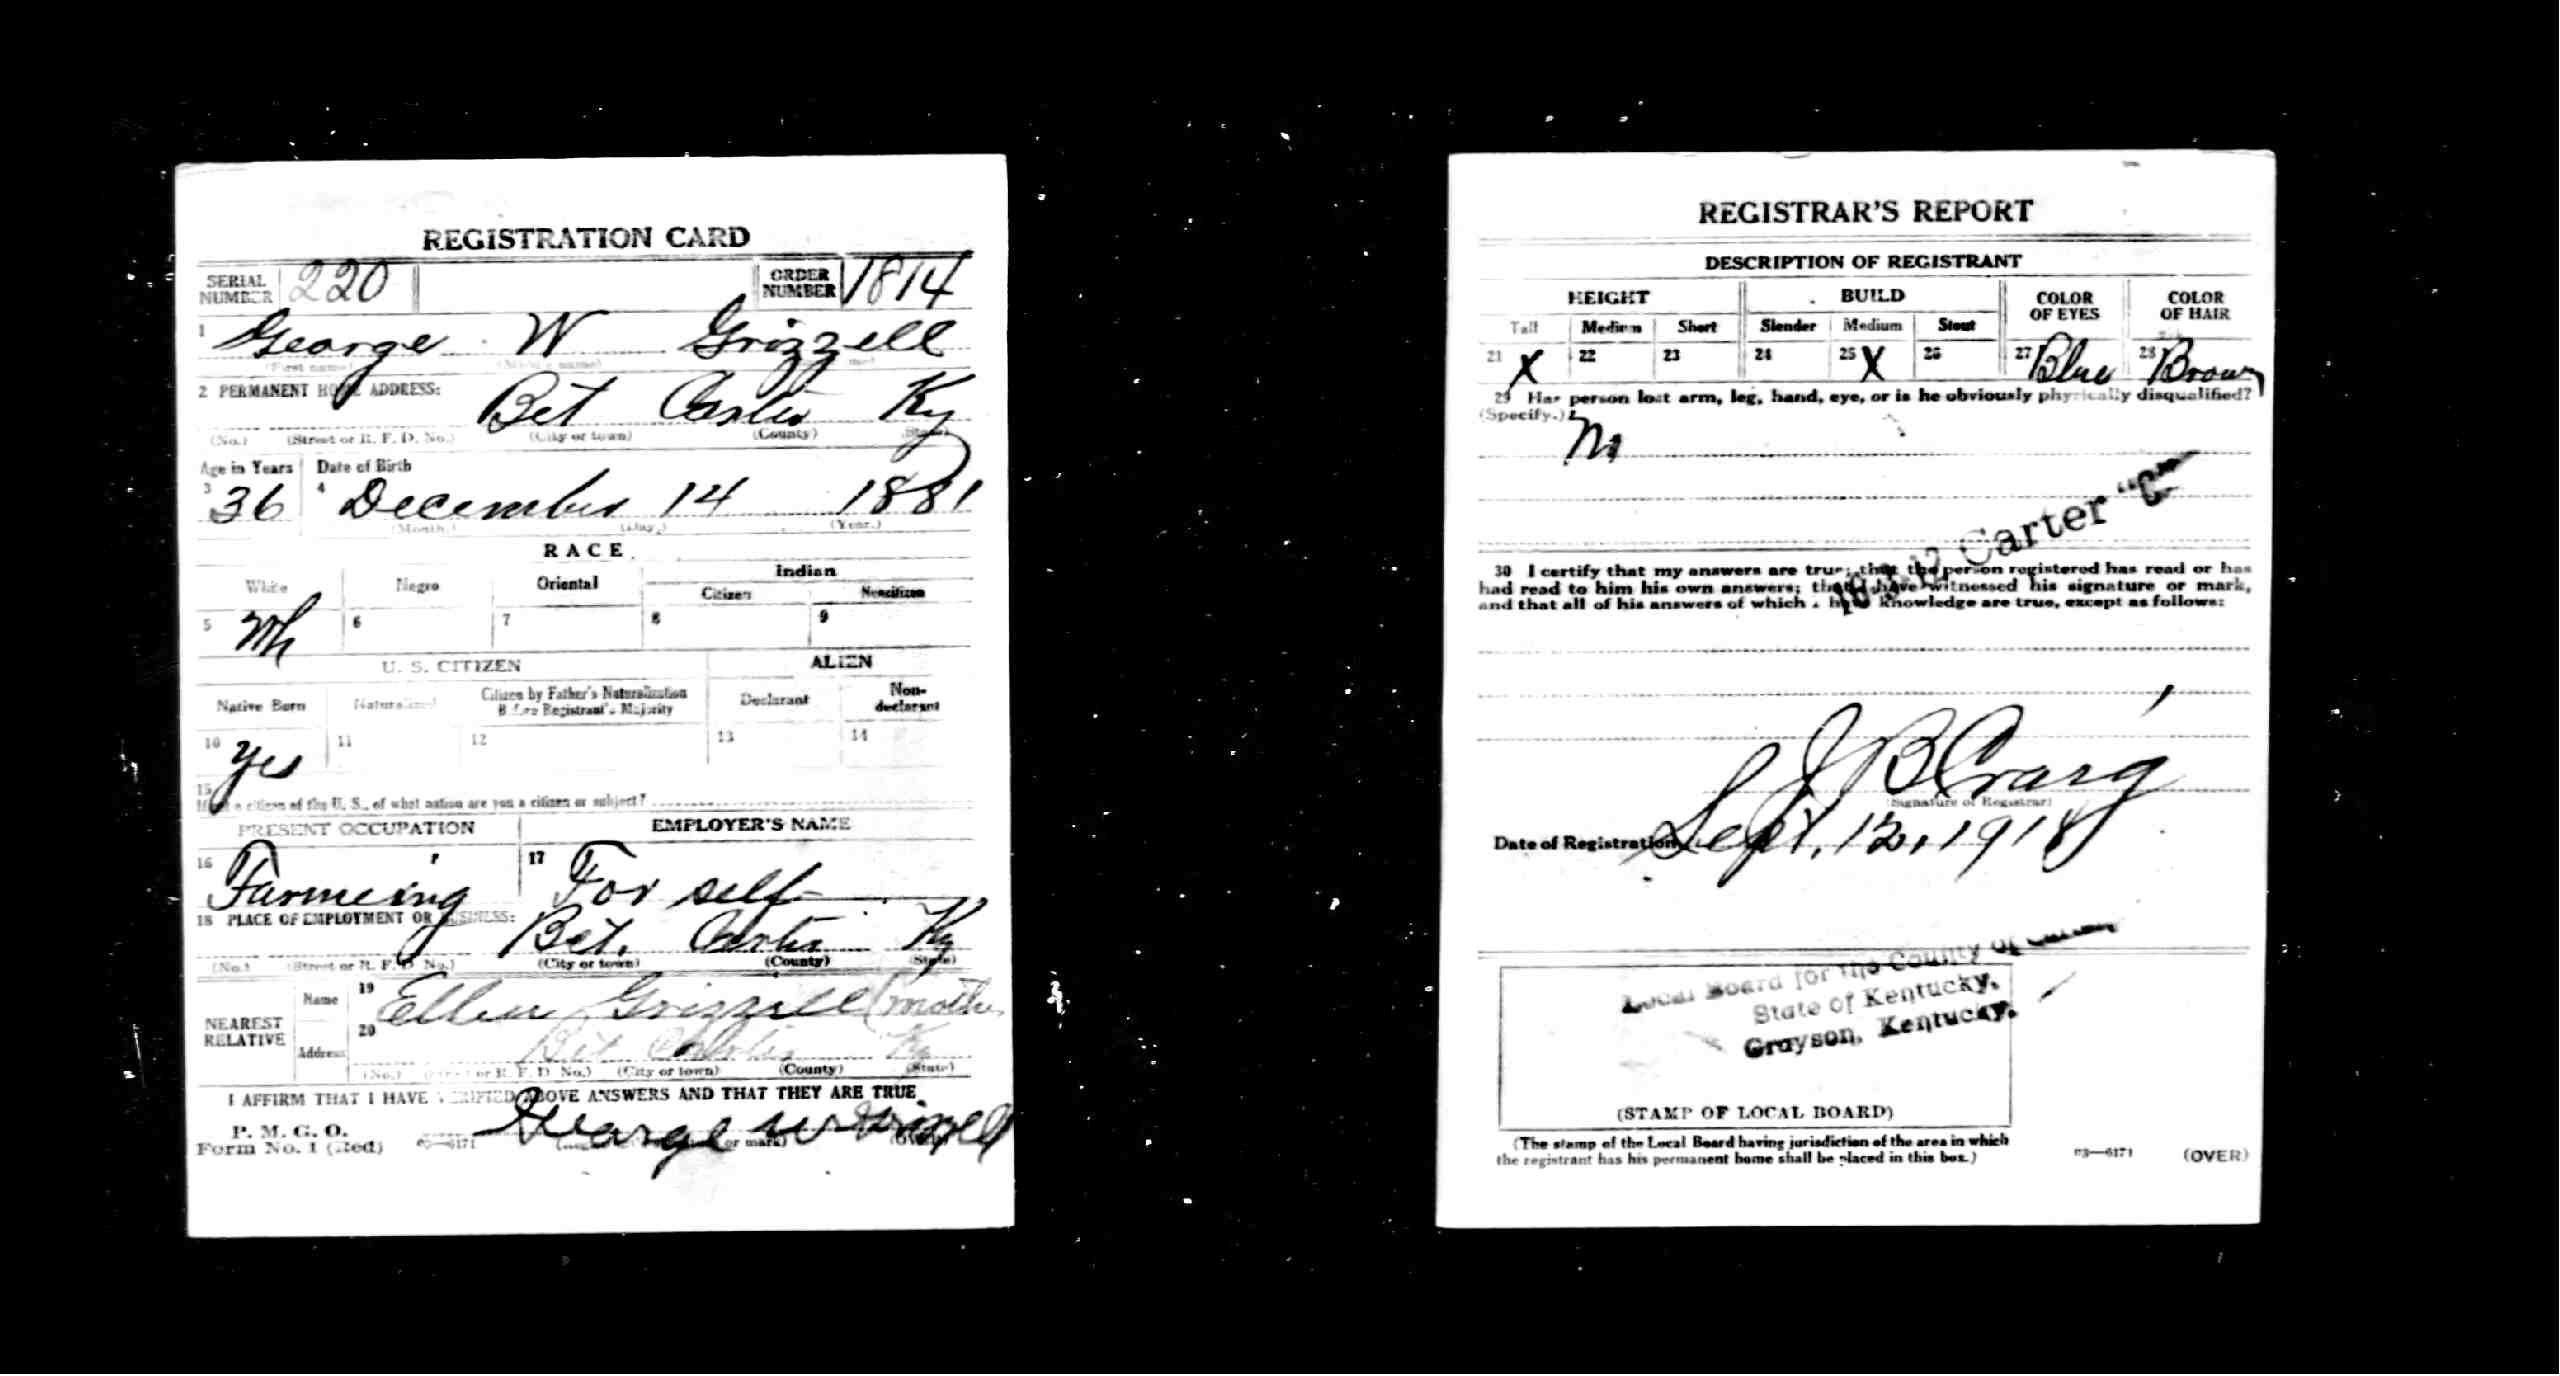 REGISTRATION CARD
SERIAL NUMBER 220 ORDER NUMBER 1814
1 George W Grizzell
(First name) (Middle name)
2 PERMANENT HOME ADDRESS:
Bet Carter Ky
(No.) (Street or R. F. D. No.) (City or town) (County) (State)
Age in Years Date of Birth
3 36 4 December 14 1881
(Month.) (Day.) (Year.)
RACE
White Negro Oriental Indian
Citizen Noncitizen
5 Wh 6 7 8 9
U. S. CITIZEN ALIEN
Native Born Naturalized Citizen by Father's Naturalization Before Registrant's Majority Declarant Non-declarant
10 Yes 11 12 13 14
15
If not a citizen of the U. S., of what nation are you a citizen or subject?
PRESENT OCCUPATION EMPLOYER'S NAME
16 Farmeing 17 For self
18 PLACE OF EMPLOYMENT OR BUSINESS:
Bet. Carter Ky
(No.) (Street or R. F. D. No.) (City or town) (County) (State)
NEAREST RELATIVE
Name 19 Ellen Grizzell (mother
Address 20 Bet Carter Ky
(No.) (Street or R. F. D. No.) (City or town) (County) (State)
I AFFIRM THAT I HAVE VERIFIED ABOVE ANSWERS AND THAT THEY ARE TRUE
P. M. G. O.
Form No. 1 (Red) 03—6171 George W Grizzell
or mark)
REGISTRAR'S REPORT
DESCRIPTION OF REGISTRANT
HEIGHT BUILD COLOR OF EYES COLOR OF HAIR
Tall Medium Short Slender Medium Stout
21 X 22 23 24 25 X 26 27 Blue 28 Brown
29 Has person lost arm, leg, hand, eye, or is he obviously physically disqualified?
(Specify.)
No
Carter "C"
30 I certify that my answers are true; that the person registered has read or has
had read to him his own answers; that I have witnessed his signature or mark,
and that all of his answers of which I have knowledge are true, except as follows:
J B Craig
(Signature of Registrar)
Date of Registration Sept, 12, 1918
Local Board for the County of Carter
State of Kentucky,
Grayson, Kentucky.
(STAMP OF LOCAL BOARD)
(The stamp of the Local Board having jurisdiction of the area in which
the registrant has his permanent home shall be placed in this box.)
03—6171 (OVER)